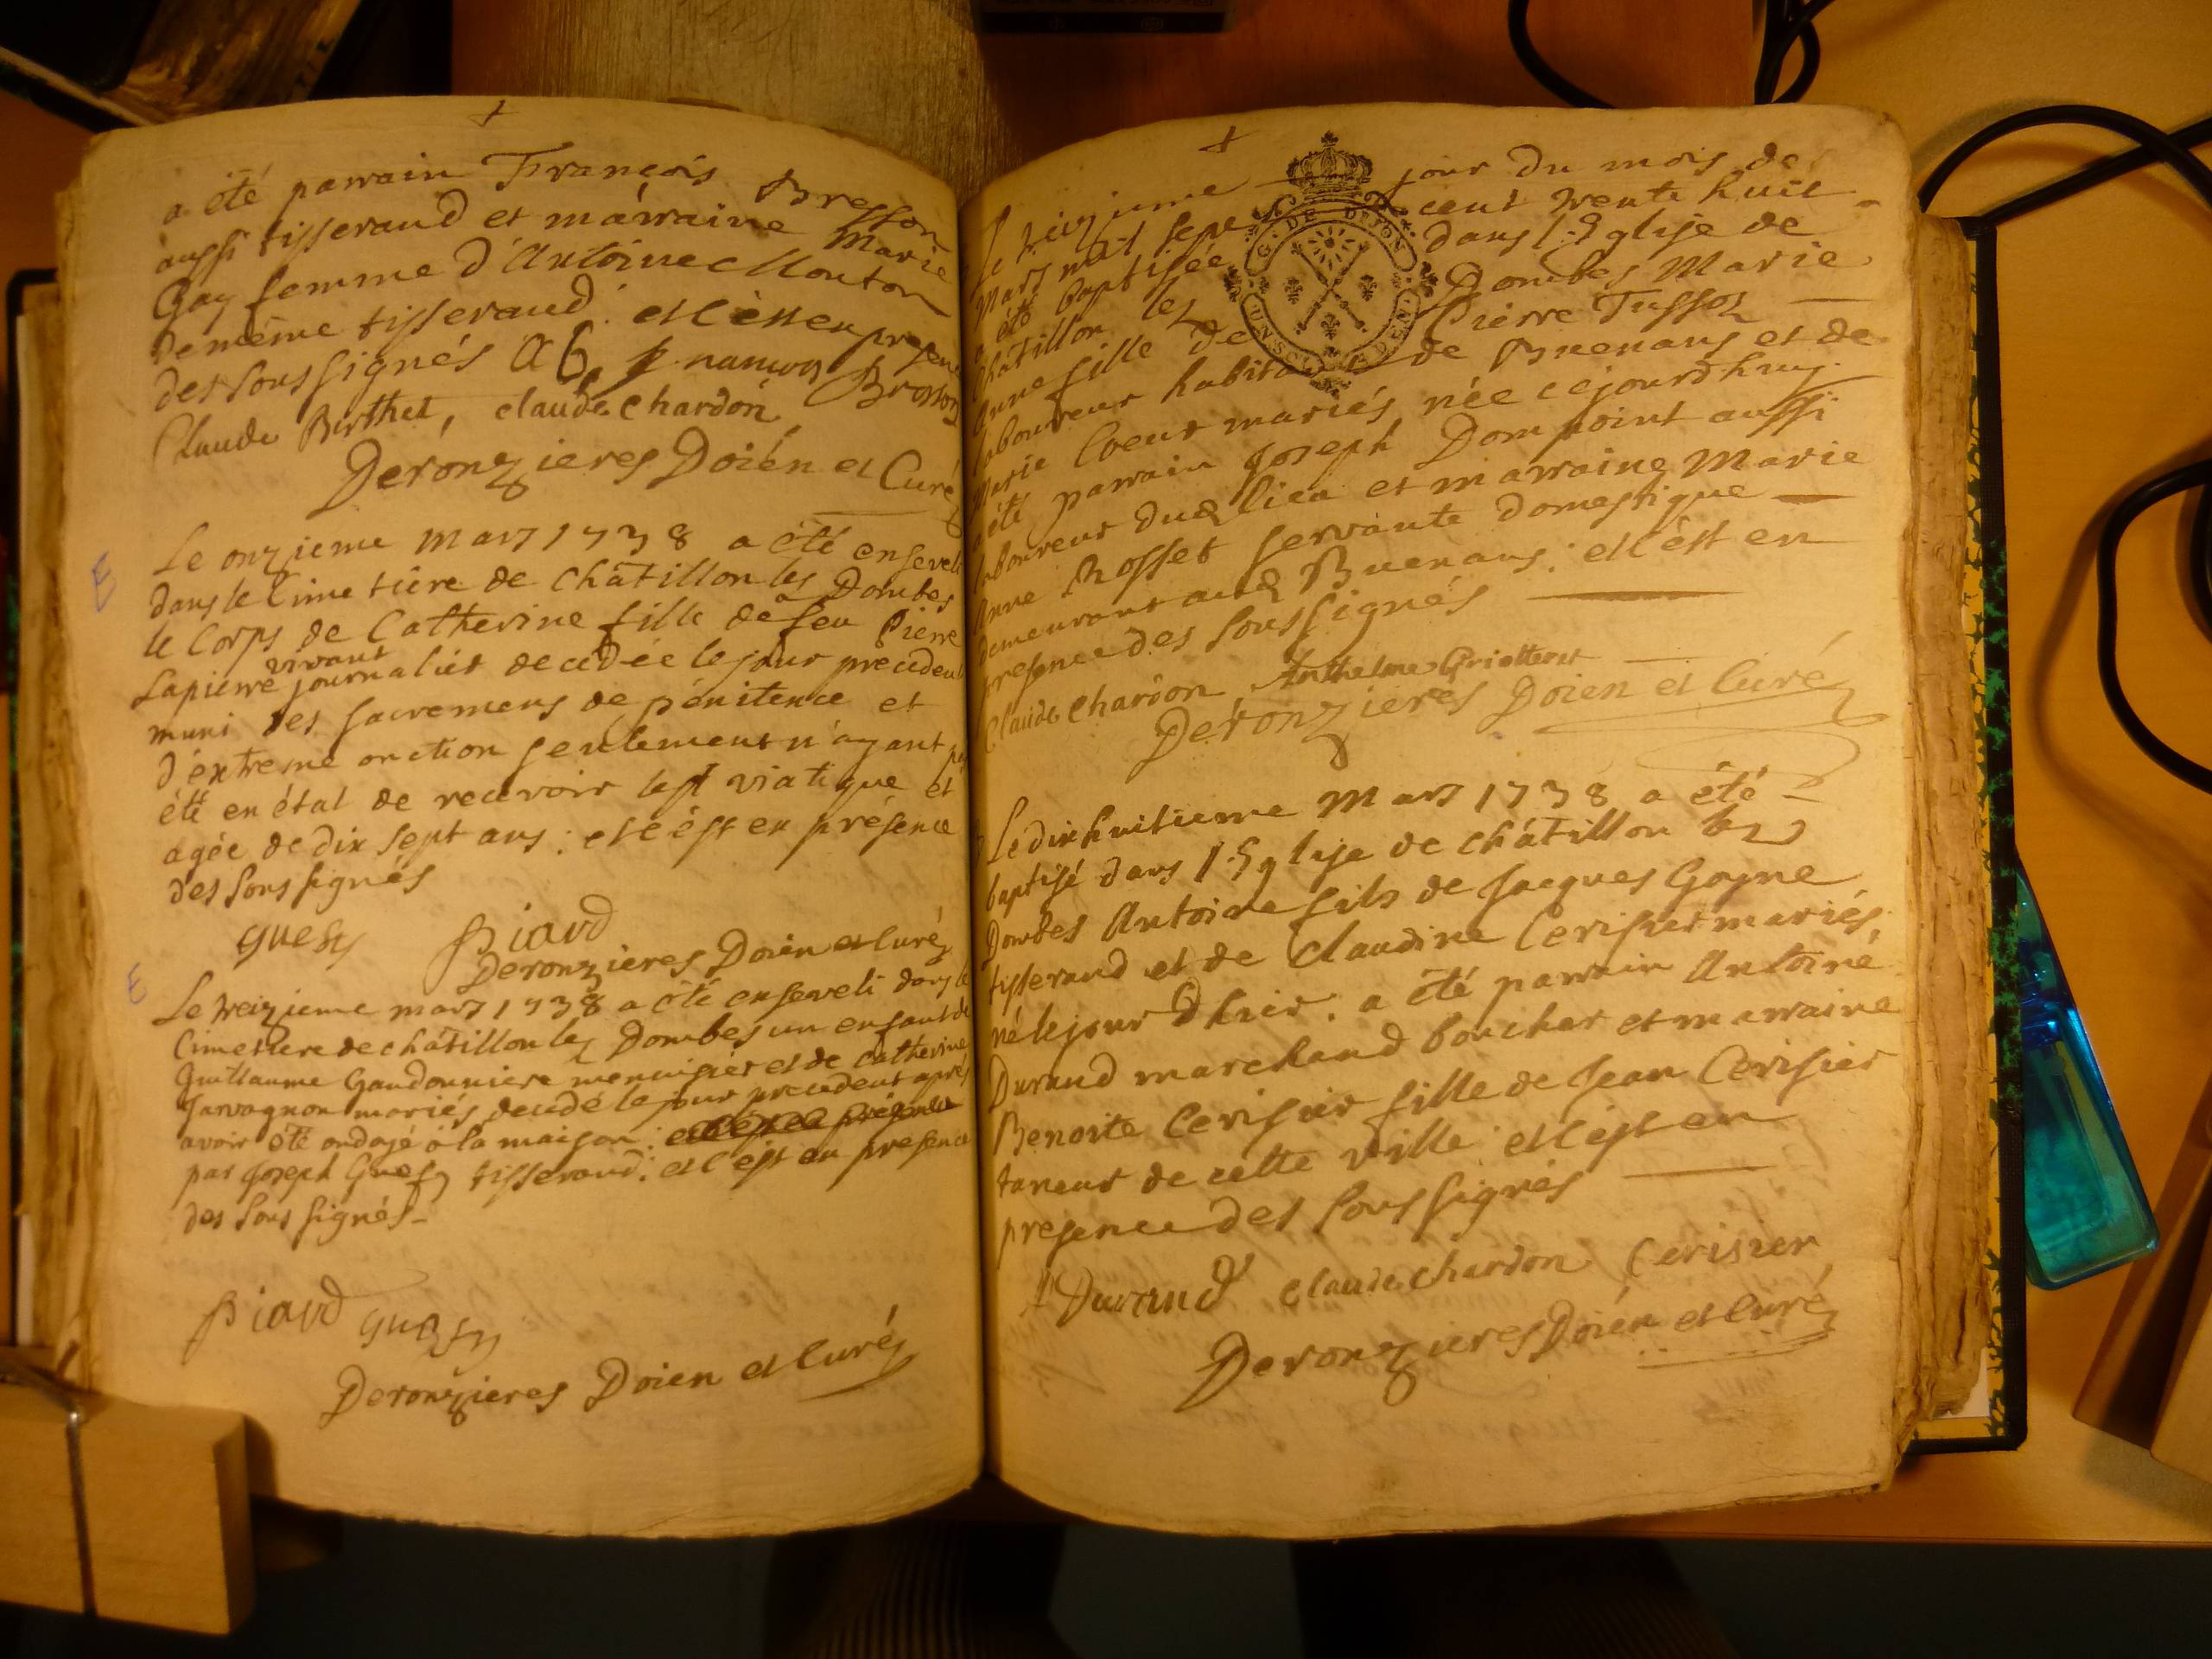 a été parrain François Bresson
aussi tisserand et marraine Marie
Gay femme d'Antoine Mouton
de même tisserand: et c'est en presence
des soussignés
Claude Berthet, claude chardon Brosson
Deronzieres Doien et Curé
E
Le onzieme mars 1738 a été enseveli
dans le Cimetiére de châtillon les Dombes
le Corps de Catherine fille de feu Pierre
vivant
Lapierre journalier decédée le jour précedent
muni des sacremens de pénitence et
d'extreme onction seulement n'ayant pas
été en état de recevoir le st viatique et
agée de dix sept ans: et c'est en présence
des soussignés
guesy Biard
Deronzieres Doien et Curé
E
Le treizieme mars 1738 a été enseveli dans le
Cimetiere de châtillon les Dombes un enfant de
Guillaume Gaudonniere menuisier et de Catherine
Sarvagnon mariés decedé le jour precedent après
avoir été ondoyé à la maison: et c'est en présence
par Joseph Guesy tisserand: et c'est en presence
des soussignés
Biard guesy
Deronzieres Doien et Curé
Le treizieme jour du mois de
Mars mil sept cent trente huit
a été baptisée dans l'Eglise de
châtillon les Dombes Marie
Anne fille de Pierre Tussot
laboureur habitant de Buenans et de
Marie Coeur mariés née cejourdhuy.
a été parrain Joseph Dompoint aussi
laboureur dud lieu et marraine Marie
Anne Rosset servante domestique
demeurant aud Buenans: et c'est en
presence des soussignés
Claude chardon Anthelme
Deronzieres Doien et Curé
GEN. DE DIJON
Le dixhuitieme Mars 1738 a été
baptisé dans l'Eglise de châtillon les
Dombes Antoine fils de Jacques Gogne
tisserand et de Claudine Cerisier mariés,
né le jour d'hier: a été parrain Antoine
Durand marchand boucher et marraine
Benoite Cerisier fille de Jean Cerisier
taneur de cette ville et c'est en
presence des soussignés
A Durand claude chardon Cerisier
Deronzieres Doien et Curé